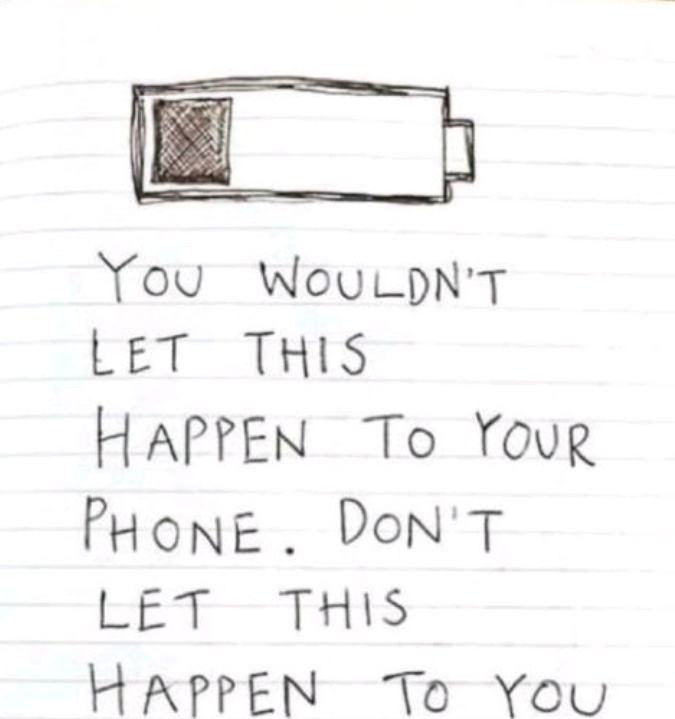 YOU WOULDN'T
LET THIS
HAPPEN TO YOUR
PHONE. DON'T
LET THIS
HAPPEN TO YOU